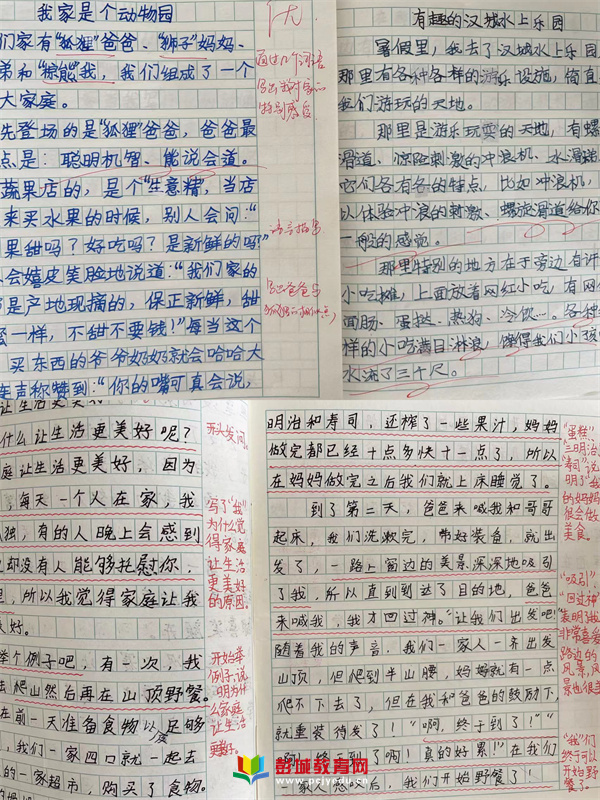 我家是个动物园
们家有“狐狸”爸爸、“狮子”妈妈、
弟和“棕熊”我,我们组成了一个
大家庭。
先登场的是“狐狸”爸爸,爸爸最
点是:聪明机智、能说会道。
蔬果店的,是个“生意精”,当店
来买水果的时候,别人会问:“
果甜吗?好吃吗?是新鲜的吗?”
会嬉皮笑脸地说道:“我们家的
是产地现摘的,保正新鲜,甜
一样,不甜不要钱!”每当这个
买东西的爷爷奶奶就会哈哈大
连声称赞到:“你的嘴可真会说,
优
有趣的汉城水上乐园
暑假里,我去了汉城水上乐园
那里有各种各样的游乐设施,简直
我们游玩的天地。
那里是游乐玩耍的天地,有螺
滑道、惊险刺激的冲浪机、水滑梯
它们各有各的特点,比如冲浪机,
以体验冲浪的刺激、螺旋滑道给你
一般的感觉。
那里特别的地方在于旁边有许
小吃摊,上面放着网红小吃,有网
面肠、蛋挞、热狗、冷饮…。各种
样的小吃满目淋浪,馋得我们小孩
水流了三千尺。
让生活更美
什么让生活更美好呢?
庭让生活更美好,因为
,每天一个人在家,我
独,有的人晚上会感到
却没有人能够抚慰你,
,所以我觉得家庭让我
美好。
举个例子吧,有一次,我
去爬山然后在山顶野餐。
在前一天准备食物以足够
,我们一家四口就一起去
的一家超市,购买了食物。
开头发问。
写了“我”
为什么觉
得家庭
让生活
更美好
的原因。
开始举
例子,说
明为什
么家庭
让生活
更美好。
明治和寿司,还榨了一些果汁,妈妈
做完都已经十点多快十一点了,所以
在妈妈做完之后我们就上床睡觉了。
到了第二天,爸爸来喊我和哥哥
起床,我们洗漱完,带好装备,就出
发了,一路上窗边的美景深深地吸引
了我,所以直到到达了目的地,爸爸
来喊我,我才回过神。“让我们出发吧!”
随着我的声音,我们一家人一齐出发
山顶,但爬到半山腰,妈妈就有一点
爬不下去了,但在我和爸爸的鼓励下,
就重装待发了!“啊,终于到了!”“
啊!终于到了啊!真的好累!”在我们
一家人感叹后,我们开始野餐了!
“蛋糕”
“三明治”
“寿司”说
明了“我”
的妈妈
很会做
美食。
“吸引”
“回过神”
表明了我
非常喜爱
路边的
风景,风
景也很美
“我们”
终于可以
开始野
餐了。
彭城教育网
www.pcjyedu.cn